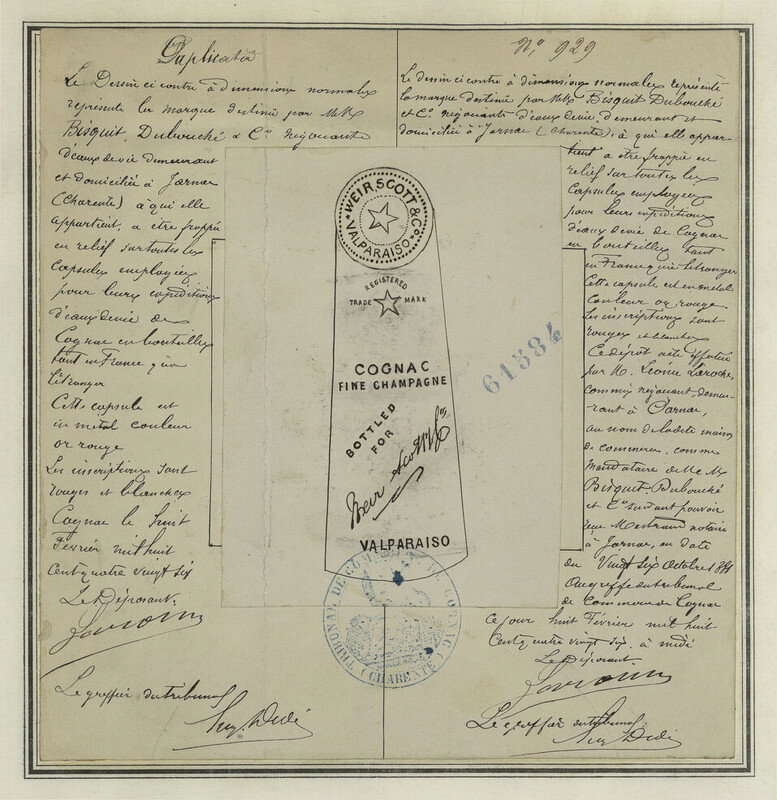 Duplicata
Le Dessin ci contre à dimensions normales
représente la marque destinée par MM
Bisquit, Dubouché & Cie négociants
d'eaux de vie demeurant
et domiciliés à Jarnac
(Charente) à qui elle
appartient, a etre frappée
en relief sur toutes les
capsules employées
pour leurs expéditions
d'eaux de vie de
Cognac en bouteilles
tant en France qu'à
l'étranger
Cette capsule est
en métal couleur
or rouge
Les inscriptions sont
rouges et blanches
Cognac le huit
Février mil huit
Cent quatre vingt six
Le Déposant:
Le greffier du tribunal
WEIR, SCOTT & Co.
VALPARAISO
REGISTERED
TRADE MARK
COGNAC
FINE CHAMPAGNE
BOTTLED
FOR
Weir Scott & Co
VALPARAISO
61584
TRIBUNAL DE COMMERCE DE COGNAC
(CHARENTE)
No. 929
Le dessin ci contre à dimensions normales représente
la marque destinée par MM Bisquit Dubouché
et Cie négociants d'eaux de vie, demeurant et
domiciliés à Jarnac (Charente), à qui elle appar-
tient a etre frappée en
relief sur toutes les
Capsules employées
pour leurs expéditions
d'eaux de vie de Cognac
en bouteilles tant
en France qu'à l'étranger
Cette capsule est en métal
Couleur or rouge
Les inscriptions sont
rouges et blanches
Ce dépôt a été effectué
par M. Léonce Laroche,
commis négociant, demeu-
rant à Jarnac,
au nom de ladite maison
de commerce, comme
mandataire de MM
Bisquit Dubouché
et Cie suivant pouvoir
reçu Mestreau notaire
à Jarnac, en date
du Vingt six Octobre
Au greffe du tribunal
de Commerce de Cognac
ce jour huit Février mil huit
Cent quatre vingt six à midi
Le Déposant
Le greffier du tribunal: